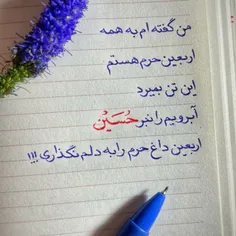 من گفته ام به همه
اربعین حرم هستم
این تن بمیرد
آبرویم را نبر حُسَیْن
اربعین داغ حرم را به دلم نگذاری !!!